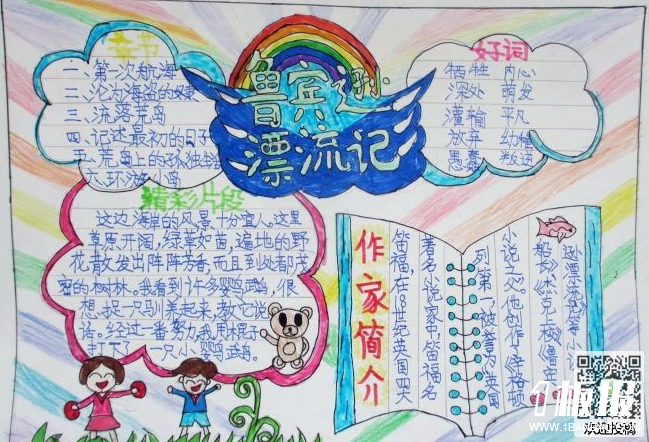 鲁宾逊
漂流记
章节
一、第一次航海
二、沦为海盗的奴隶
三、流落荒岛
四、记述最初的日子
五、荒岛上的孤独生
六、环游小岛
好词
牺牲 内心
深处 萌发
灌输 平凡
放弃 幼稚
愚蠢 叛逆
精彩片段
这边海岸的风景十分宜人。这里
草原开阔,绿草如茵,遍地的野
花散发出阵阵芳香,而且到处都茂
密的树林。我看到许多鹦鹉,很
想捉一只驯养起来,教它说
话。经过一番努力,我用棍子
打下了一只小鹦鹉。
作家简介
笛福,在18世纪英国四大
著名小说家中,笛福名
列第一,被誉为英国
小说之父。他创作《辛格顿
船长》《杰克上校》《鲁宾
逊漂流记》等小说
板报
WWW.1BANBAO.COM
欢迎投稿